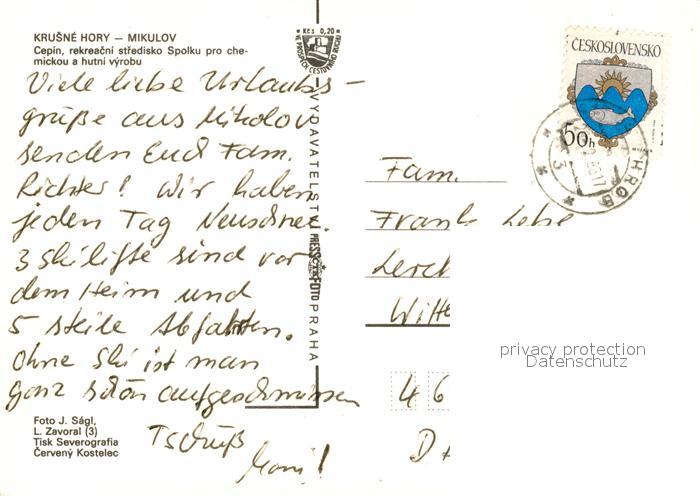 KRUŠNÉ HORY — MIKULOV
Cepín, rekreační středisko Spolku pro che-
mickou a hutní výrobu
Viele liebe Urlaubs-
grüße aus Mikolov
senden Euch Fam.
Richter! Wir haben
jeden Tag Neuschnee.
3 Skilifte sind vor
dem Heim und
5 steile Abfahrten.
Ohne Ski ist man
ganz schön aufgeschmissen
Tschüß
Foto J. Ságl,
L. Zavoral (3)
Tisk Severografia
Červený Kostelec
Kčs 0,20
VE PROSPĚCH CESTOVNÍHO RUCHU
VYDAVATELSTVÍ PRESSFOTO PRAHA
ČESKOSLOVENSKO
50h
HROB
3
Fam.
Frank
Lerch
Witte
4 6
D
privacy protection
Datenschutz